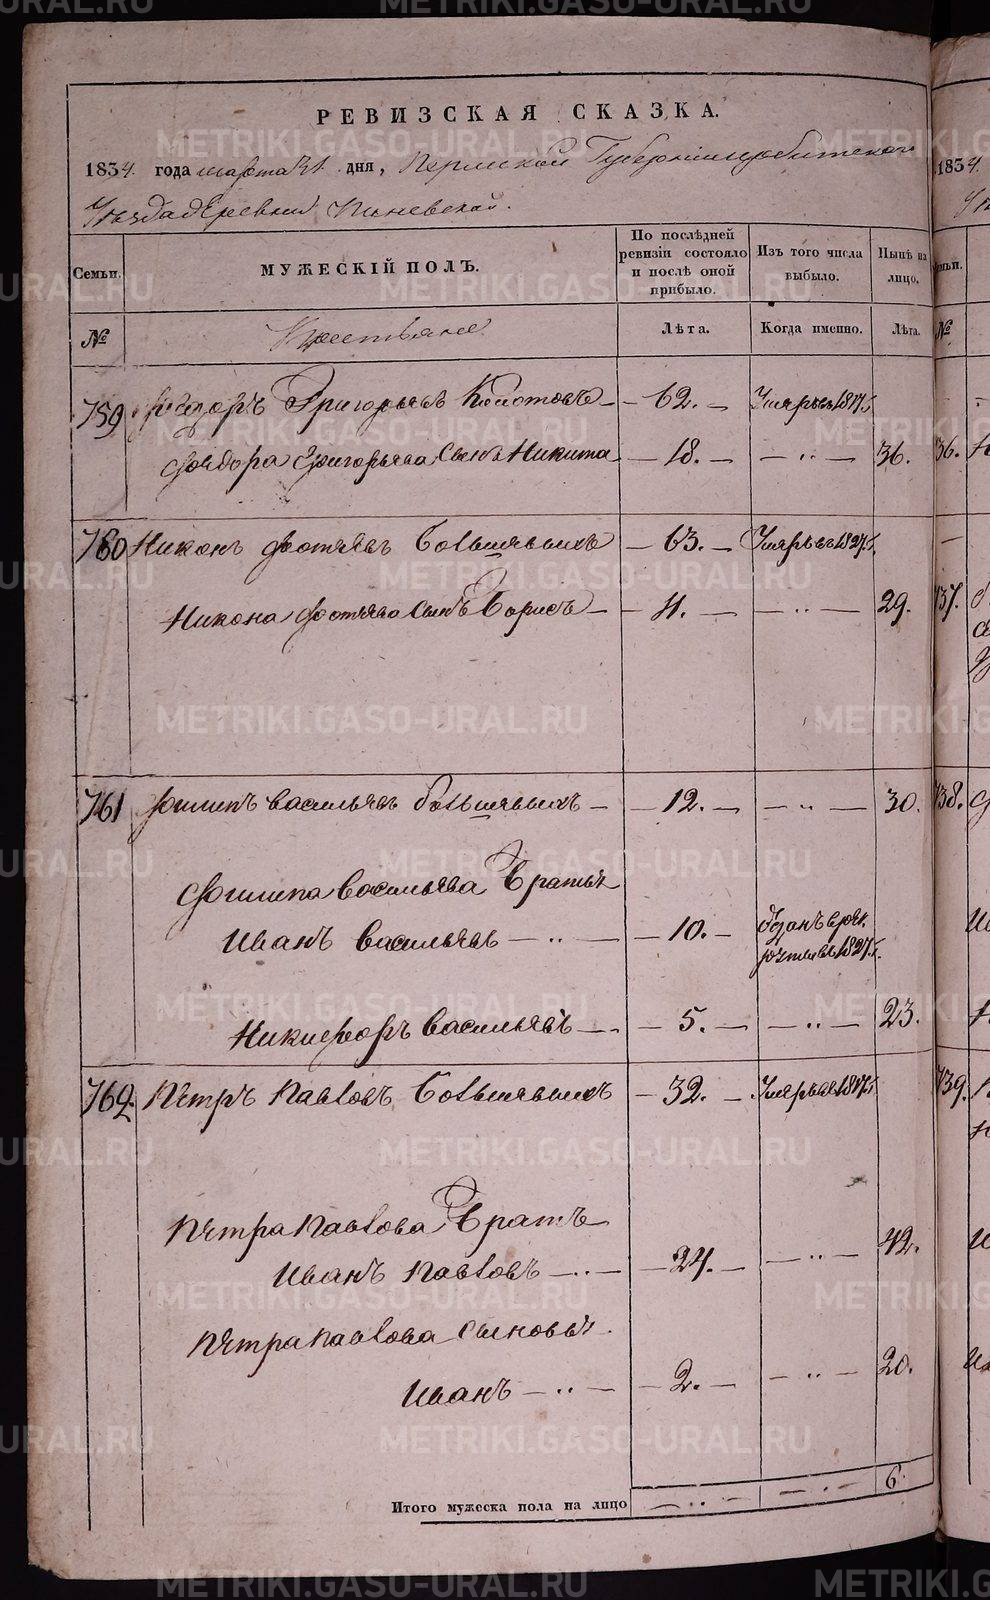 РЕВИЗСКАЯ СКАЗКА.
1834. года марта 31 дня, Пермской Губернии Ирбитскаго
Уезда деревни
Семьи.
МУЖЕСКІЙ ПОЛЪ.
По послѣдней ревизіи состояло и послѣ оной прибыло.
Изъ того числа выбыло.
Нынѣ на лицо.
№
Крестьяне
Лѣта.
Когда именно.
Лѣта.
759 Федоръ Григорьевъ — 62. — Умеръ въ 1817 г.
Федора Григорьева сынъ Никита — 18. — — „ — 36.
760 Никонъ Фотеевъ — 63. — Умеръ въ 1827 г.
Никона Фотеева сынъ Борисъ — — 11. — — „ — 29.
761 Филипъ Васильевъ — — 12. — — „ — 30.
Филипа Васильева братья
Иванъ Васильевъ — „ — — 10. — Отданъ в рек
руты въ 1827 г.
Никифоръ Васильевъ — — 5. — — „ — 23.
762 Петръ Павловъ — 32. — Умеръ въ 1817 г.
Петра Павлова братъ
Иванъ Павловъ — „ — — 24. — — „ — 42.
Петра Павлова сыновья
Иванъ — „ — — 2. — — „ — 20.
Итого мужеска пола на лицо — „ — — „ — 6.
1834.
№
36.
137.
138.
139.
METRIKI.GASO-URAL.RU